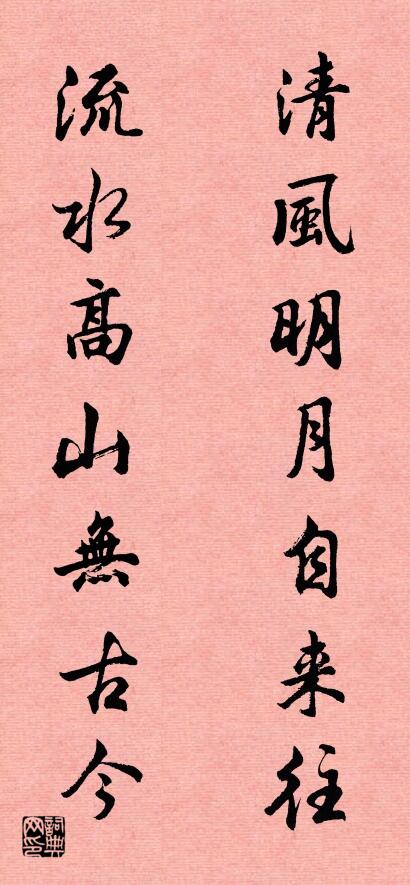 清風明月自来往
流水高山無古今
詞典网印